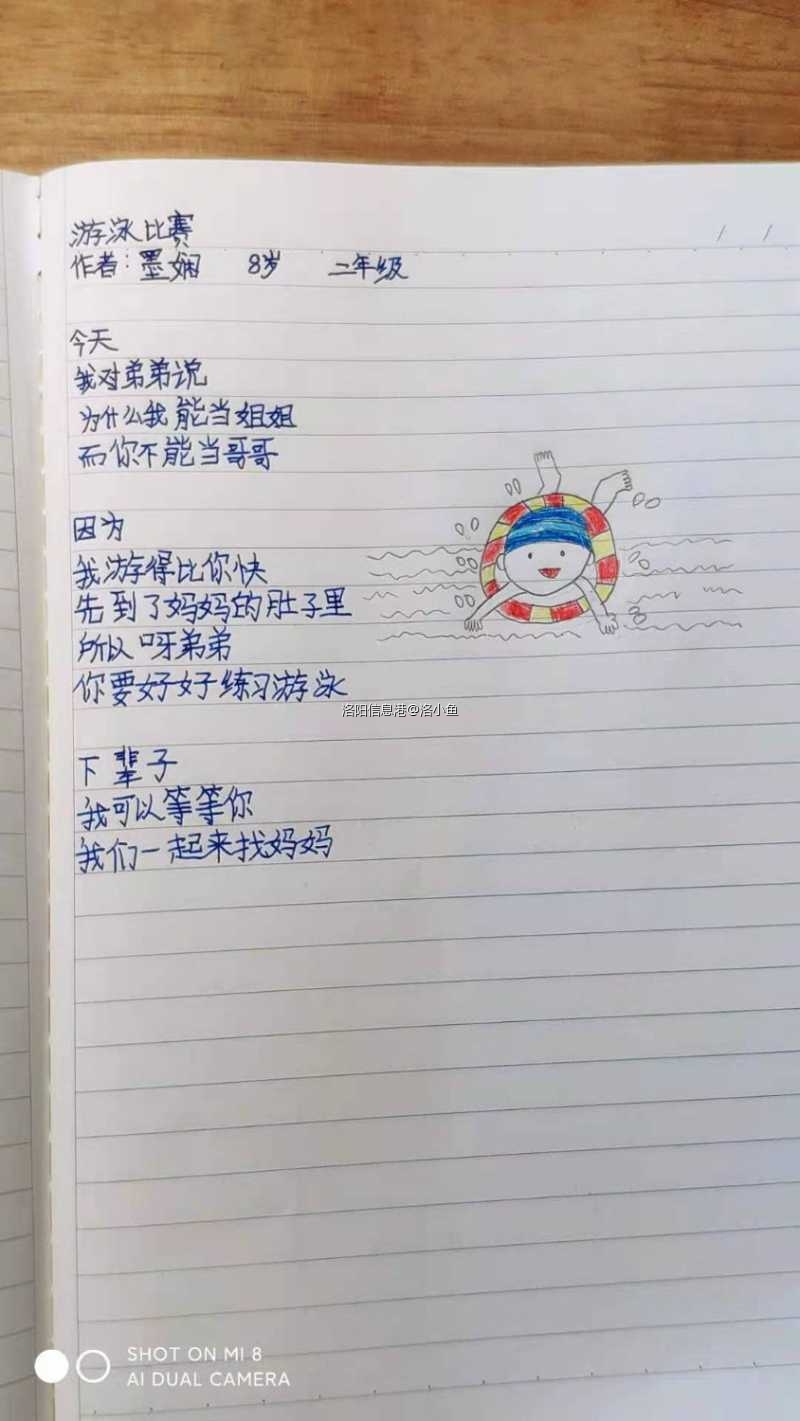 游泳比赛
作者：墨娴 8岁 二年级
今天
我对弟弟说
为什么我能当姐姐
而你不能当哥哥
因为
我游得比你快
先到了妈妈的肚子里
所以呀弟弟
你要好好练习游泳
洛阳信息港@洛小鱼
下辈子
我可以等等你
我们一起来找妈妈
SHOT ON MI 8
AI DUAL CAMERA